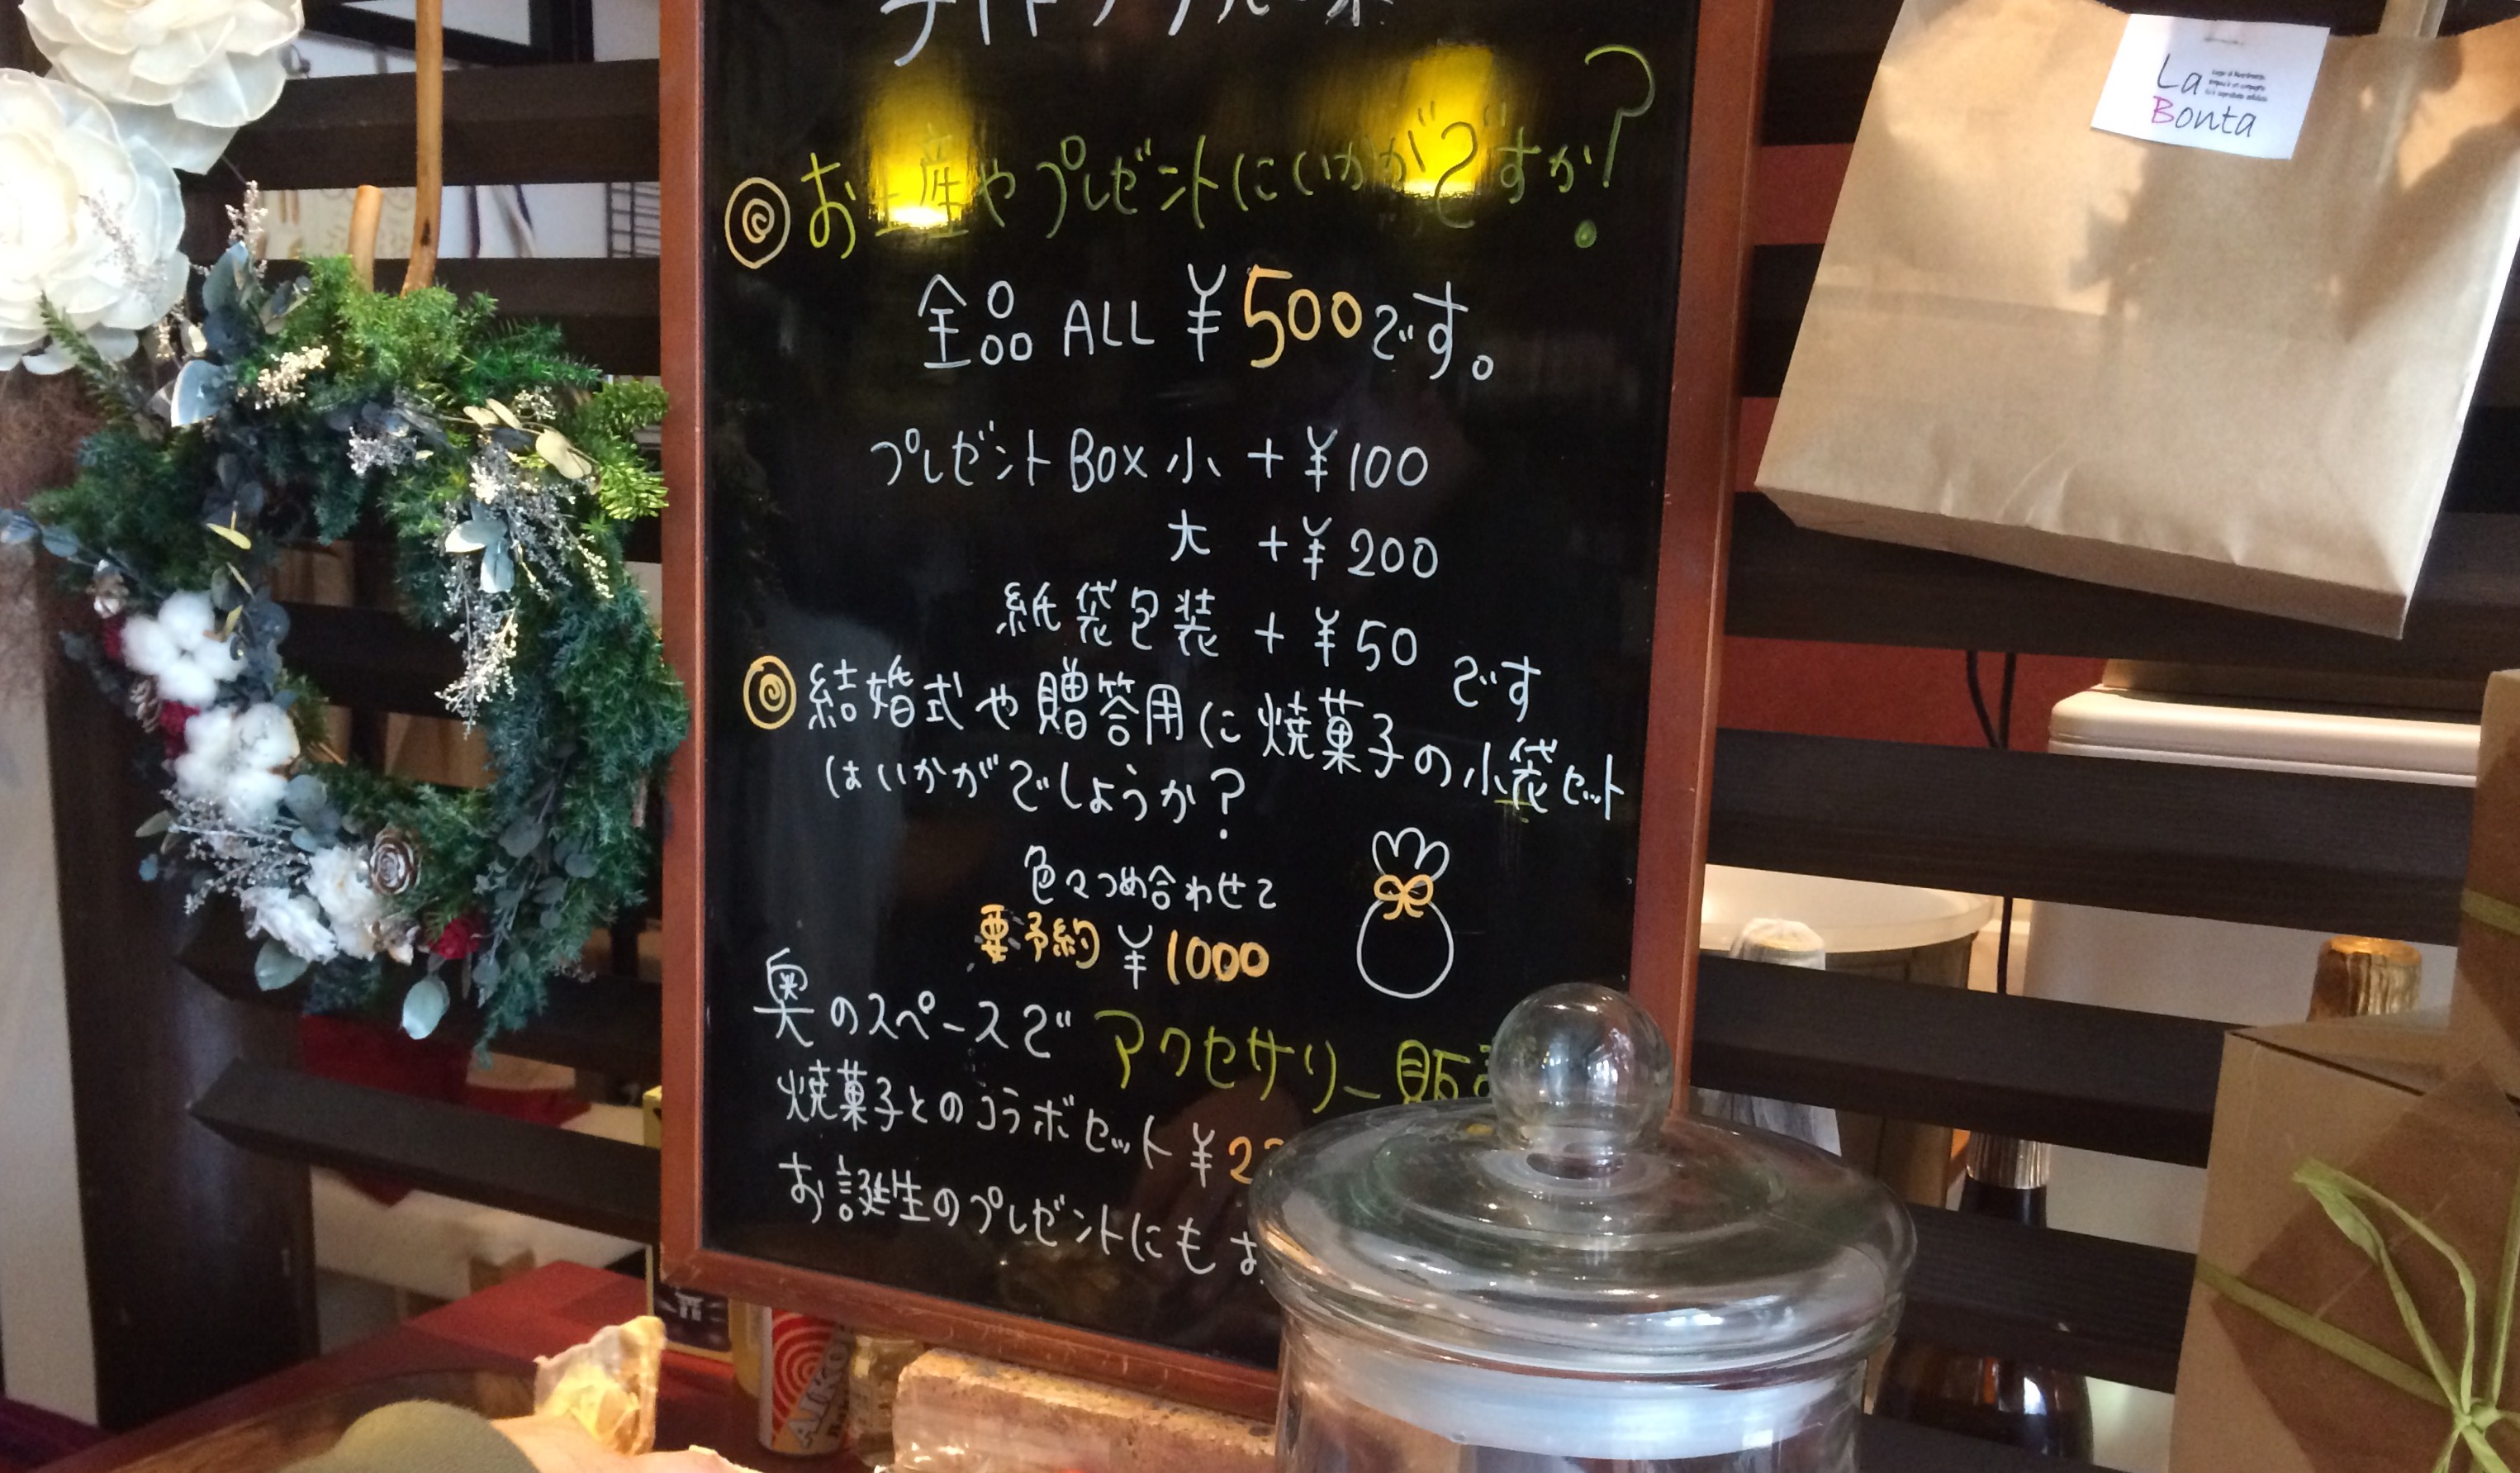 お土産やプレゼントにいかがですか?
全品 ALL ¥500です。
プレゼントBox 小 +¥100
大 +¥200
紙袋包装 +¥50 です
結婚式や贈答用に焼菓子の小袋セット
はいかがでしょうか?
色々つめ合わせて
要予約 ¥1000
奥のスペースで アクセサリー販
焼菓子とのコラボセット ¥2
お誕生のプレゼントにも
La
Bonta